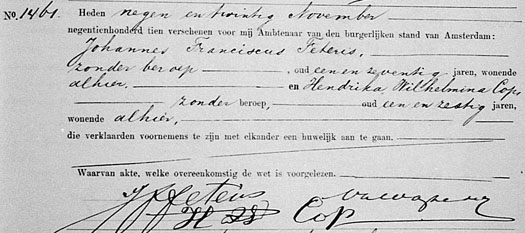 No. 1461. Heden negen en twintig November
negentienhonderd tien verschenen voor mij Ambtenaar van den burgerlijken stand van Amsterdam:
Johannes Franciscus Peteris,
zonder beroep, oud een en zeventig jaren, wonende
alhier, en Hendrika Wilhelmina Cop,
zonder beroep, oud een en zestig jaren,
wonende alhier,
die verklaarden voornemens te zijn met elkander een huwelijk aan te gaan.
Waarvan akte, welke overeenkomstig de wet is voorgelezen.
Cop